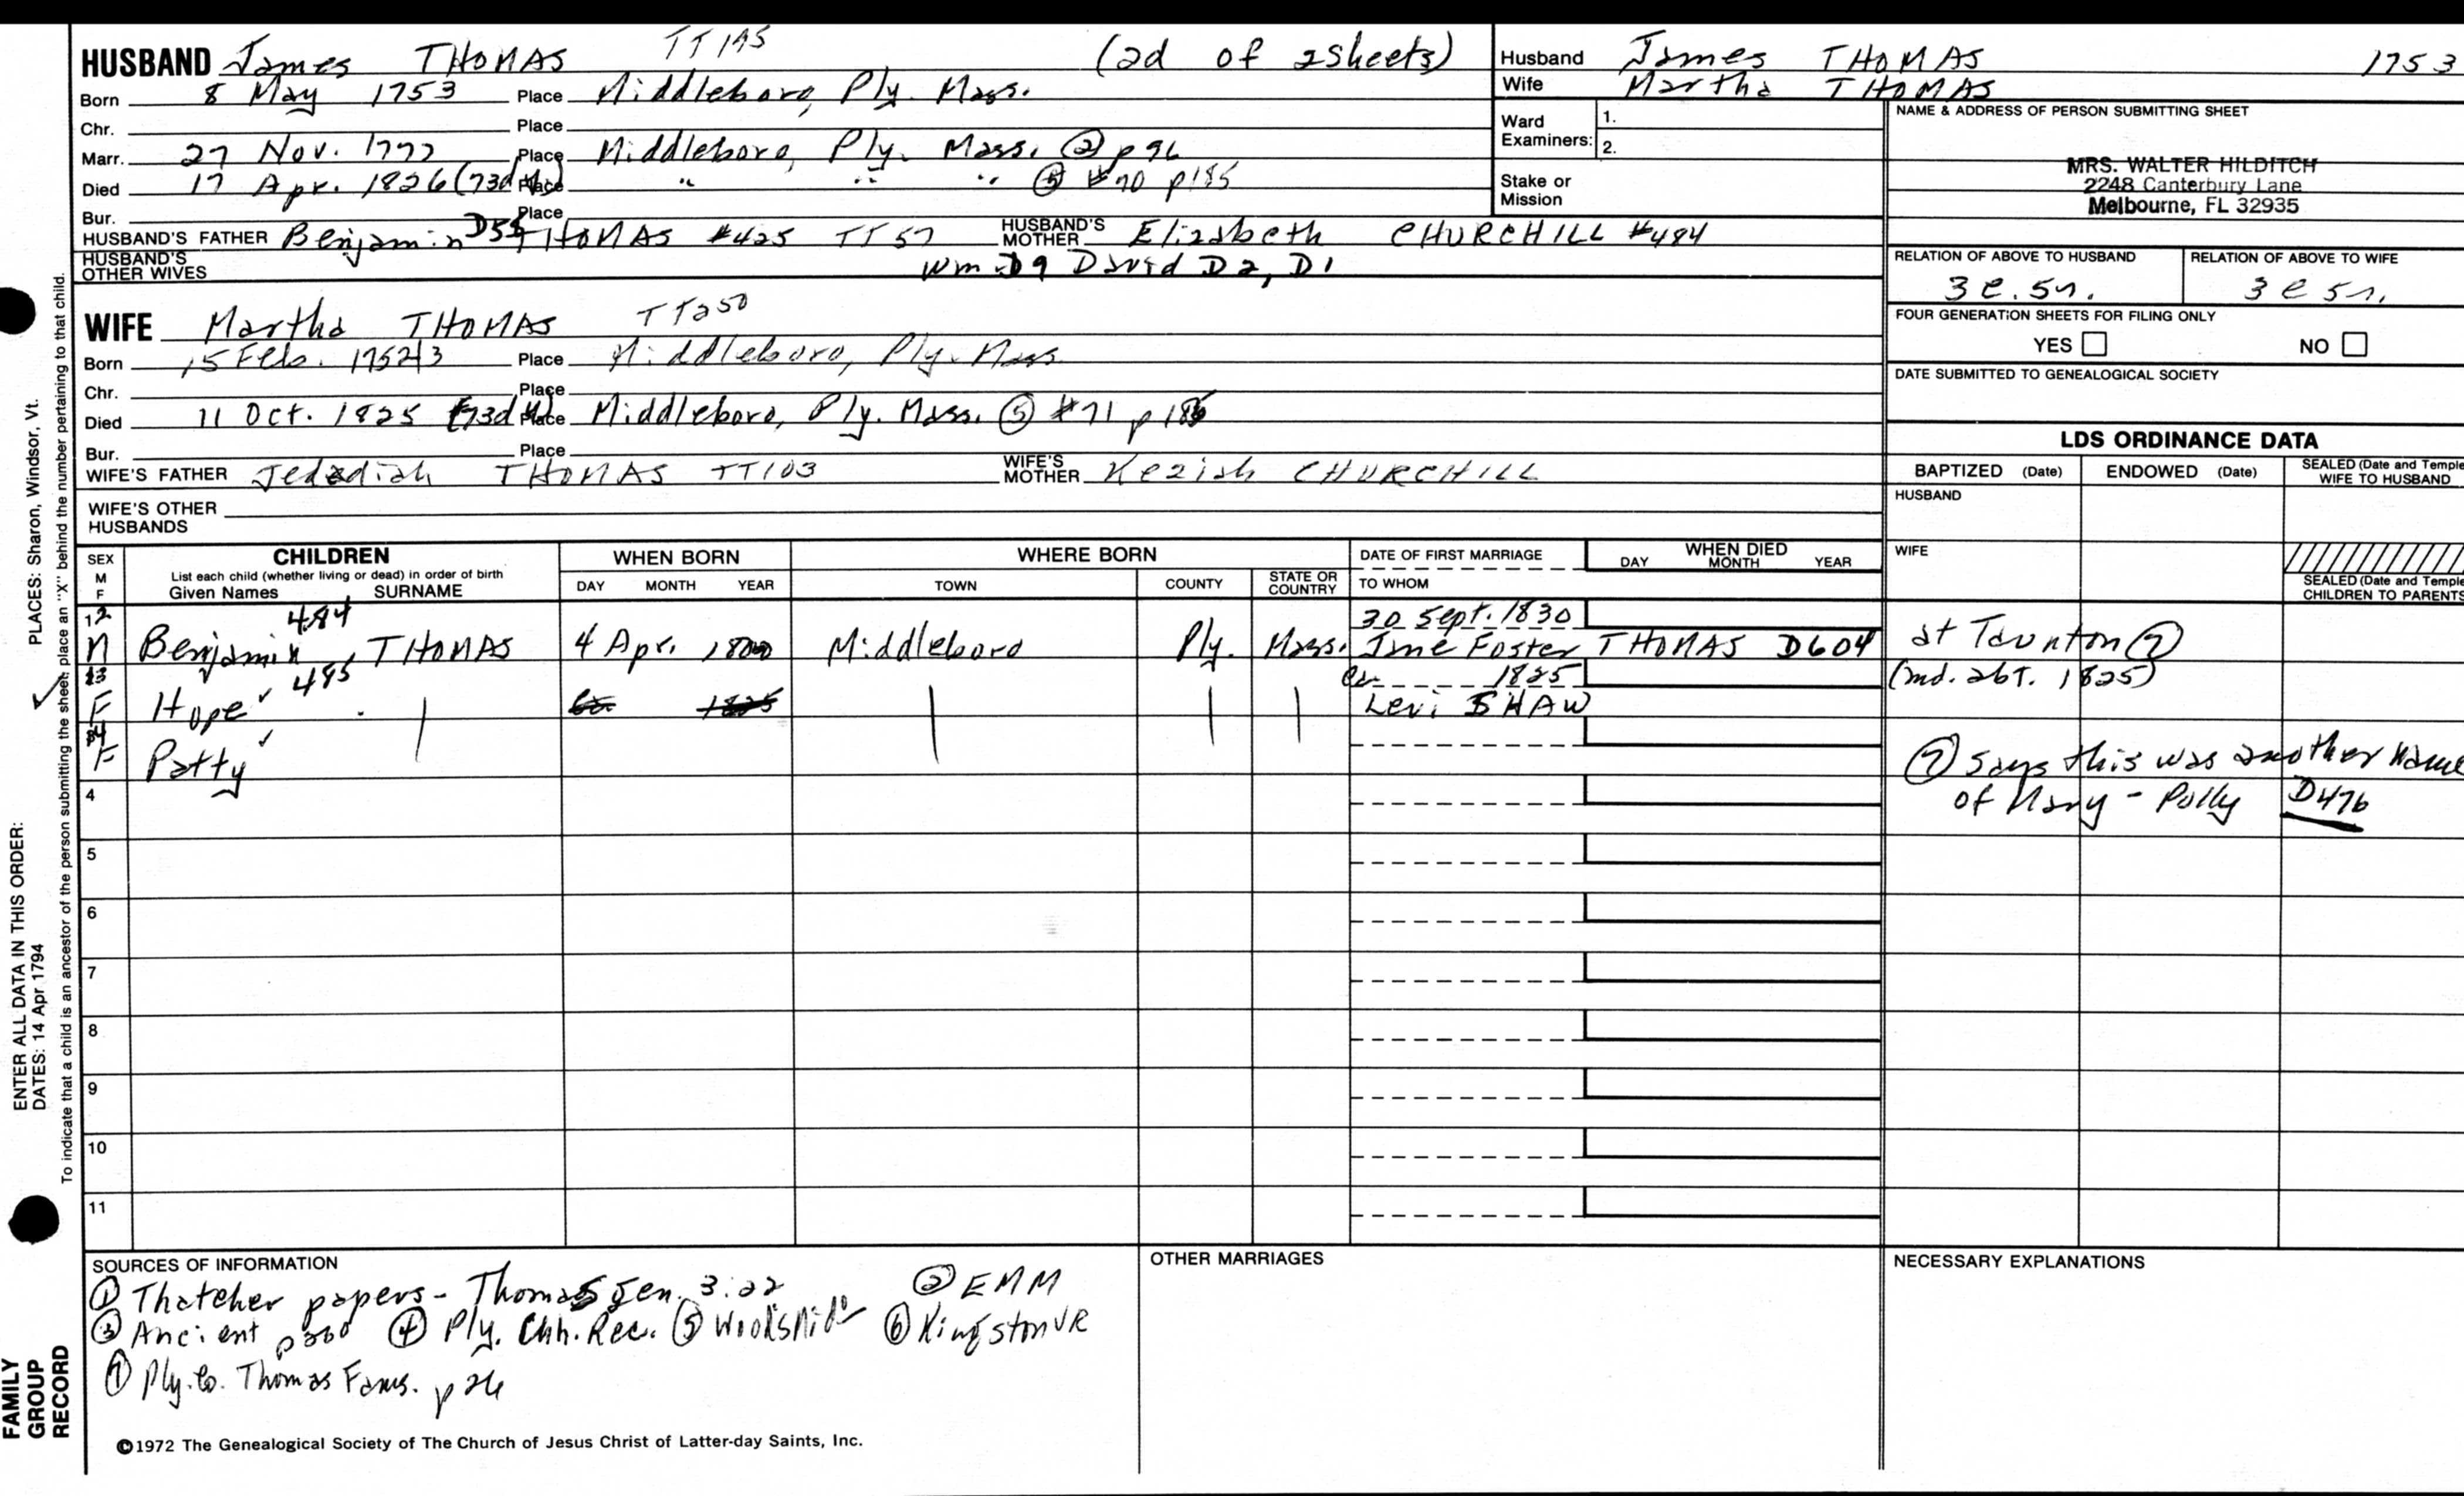 HUSBAND James THOMAS TT145 (2d of 2 sheets)
Born 8 May 1753 Place Middleboro, Ply. Mass.
Chr. Place
Marr. 27 Nov. 1777 Place Middleboro, Ply. Mass. ② p 96
Died 17 Apr. 1826 (73d yr) Place " " " ⑤ #70 p185
Bur. Place
HUSBAND'S FATHER Benjamin D54 THOMAS #425 TT57 HUSBAND'S MOTHER Elizabeth CHURCHILL #484
HUSBAND'S OTHER WIVES Wm D9 David D2, D1
WIFE Martha THOMAS TT250
Born 15 Feb. 1752/3 Place Middleboro, Ply. Mass
Chr. Place
Died 11 Oct. 1825 (73d yr) Place Middleboro, Ply. Mass. ⑤ #71 p 186
Bur. Place
WIFE'S FATHER Jedediah THOMAS TT103 WIFE'S MOTHER Keziah CHURCHILL
WIFE'S OTHER HUSBANDS
Husband James THOMAS 1753
Wife Martha THOMAS
Ward Examiners: 1.
2.
Stake or Mission
NAME & ADDRESS OF PERSON SUBMITTING SHEET
MRS. WALTER HILDITCH
2248 Canterbury Lane
Melbourne, FL 32935
RELATION OF ABOVE TO HUSBAND RELATION OF ABOVE TO WIFE
3 c. 5r. 3 c 5r.
FOUR GENERATION SHEETS FOR FILING ONLY
YES NO
DATE SUBMITTED TO GENEALOGICAL SOCIETY
LDS ORDINANCE DATA
BAPTIZED (Date) ENDOWED (Date) SEALED (Date and Temple WIFE TO HUSBAND
HUSBAND
WIFE
SEALED (Date and Temple
CHILDREN TO PARENTS
SEX M F CHILDREN WHEN BORN WHERE BORN DATE OF FIRST MARRIAGE WHEN DIED
List each child (whether living or dead) in order of birth
Given Names SURNAME DAY MONTH YEAR TOWN COUNTY STATE OR COUNTRY TO WHOM DAY MONTH YEAR
12 484 30 Sept. 1830
M Benjamin THOMAS 4 Apr. 1800 Middleboro Ply. Mass. Jane Foster THOMAS D604 at Taunton ⑦
13 485 ca 1825 (md. abt. 1825)
F Hope ca 1825 Levi SHAW
14
F Patty ⑦ says this was another name
of Mary - Polly D476
4
5
6
7
8
9
10
11
SOURCES OF INFORMATION OTHER MARRIAGES NECESSARY EXPLANATIONS
① Thatcher papers - Thomas gen. 3:22 ② EMM
③ Ancient p200 ④ Ply. Chh. Rec. ⑤ WoodsMid ⑥ Kingston VR
⑦ Ply. Co. Thomas Fams. p 26
©1972 The Genealogical Society of The Church of Jesus Christ of Latter-day Saints, Inc.
ENTER ALL DATA IN THIS ORDER:
DATES: 14 Apr 1794 PLACES: Sharon, Windsor, Vt.
To indicate that a child is an ancestor of the person submitting the sheet, place an "X" behind the number pertaining to that child.
FAMILY
GROUP
RECORD